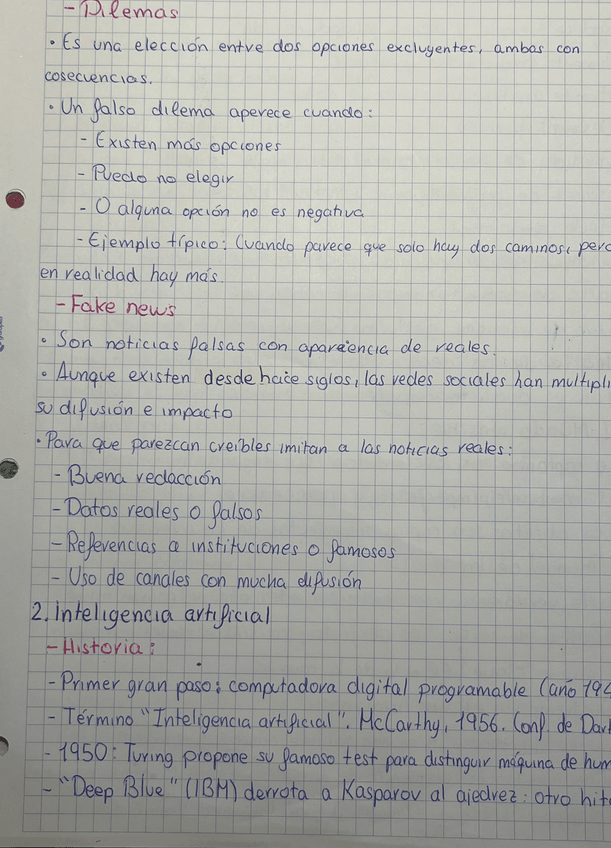 - Dilemas
• Es una elección entre dos opciones excluyentes, ambas con
cosecuencias.
• Un falso dilema aperece cuando:
- Existen más opciones
- Puedo no elegir
- O alguna opción no es negativa
- Ejemplo típico: Cuando parece que solo hay dos caminos, pero
en realidad hay más.
- Fake news
• Son noticias falsas con apareiencia de reales.
• Aunque existen desde hace siglos, las redes sociales han multipli
su difusión e impacto
• Para que parezcan creíbles imitan a las noticias reales:
- Buena redacción
- Datos reales o falsos
- Referencias a instituciones o famosos
- Uso de canales con mucha difusión
2. Inteligencia artificial
- Historia:
- Primer gran paso: computadora digital programable (año 194
- Término "Inteligencia artificial". McCarthy, 1956. Conf. de Dart
- 1950: Turing propone su famoso test para distinguir máquina de hum
- "Deep Blue" (IBM) derrota a Kasparov al ajedrez: otro hito